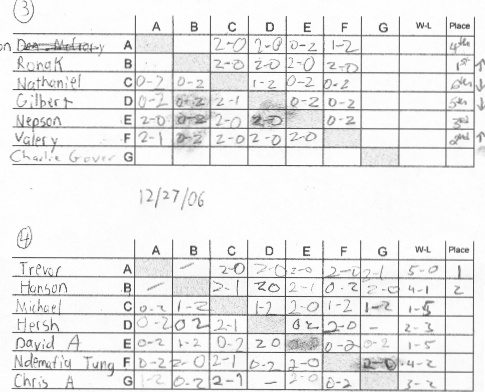 3
A B C D E F G W-L Place
A 2-0 2-0 0-2 1-2 4th
Ronak B 2-0 2-0 2-0 2-0 1st ↑
Nathaniel C 0-2 0-2 1-2 0-2 0-2 6th ↓
Gilbert D 0-2 0-2 2-1 0-2 0-2 5th ↓
Nepson E 2-0 0-2 2-0 2-0 0-2 3rd
Valery F 2-1 0-2 2-0 2-0 2-0 2nd ↑
Charlie Gover G
12/27/06
4
A B C D E F G W-L Place
Trevor A - 2-0 2-0 2-0 2-0 2-1 5-0 1
Hanson B - 2-1 20 2-1 0-2 2-0 4-1 2
Michael C 0-2 1-2 1-2 2-0 1-2 1-2 1-5
Hersh D 0-2 02 2-1 02 2-0 - 2-3
David A E 0-2 1-2 0-2 20 0-2 0-2 1-5
Ndematia Tung F 0-2 2-0 2-1 0-2 2-0 2-0 4-2
Chris A G 1-2 0-2 2-1 - 2-0 0-2 3-2